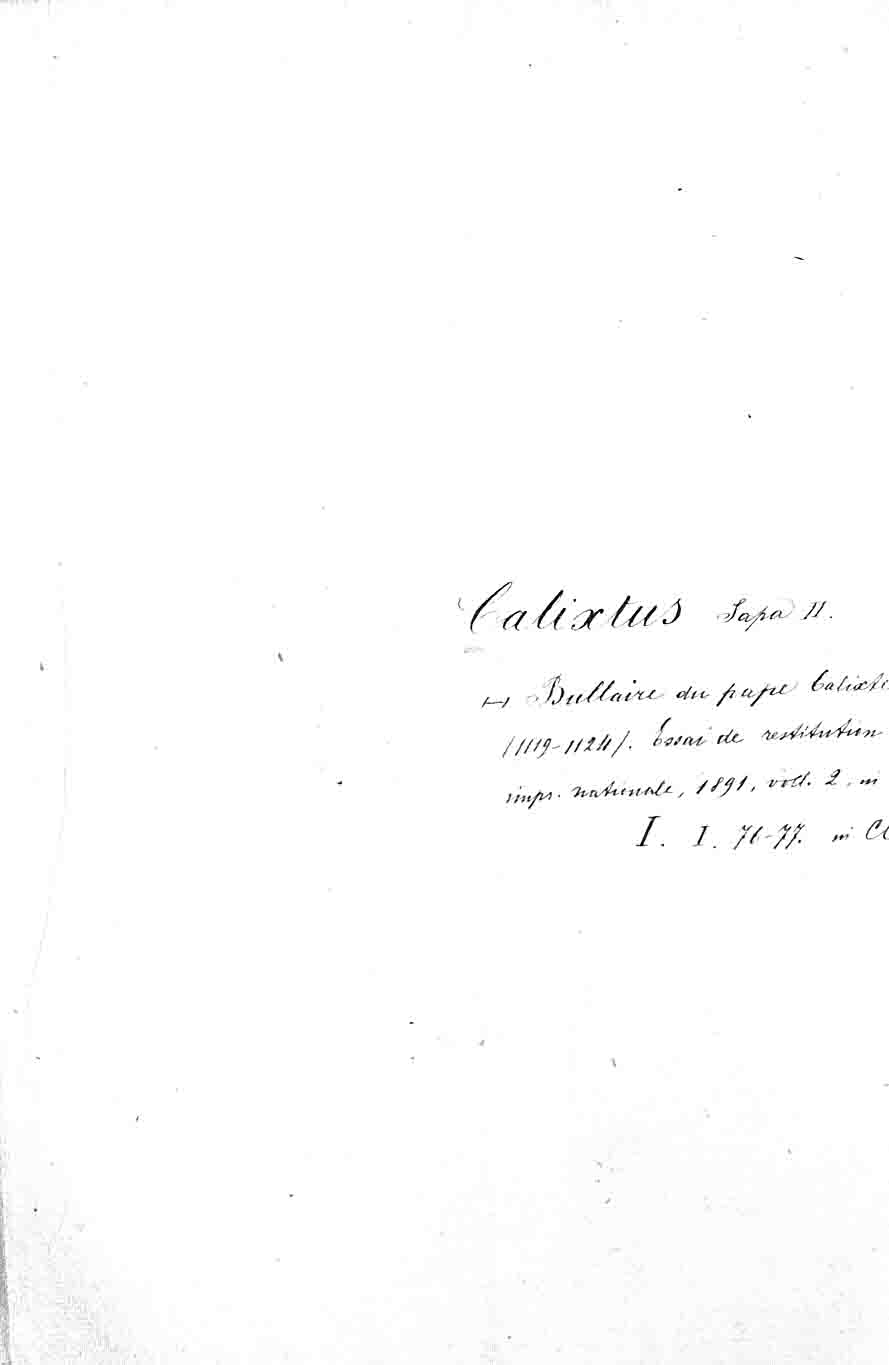 Calixtus Papa II.
⊢⊣ Bullaire du pape Calixte
(1119-1124). Essai de restitution
impr. nationale, 1891, voll. 2, in
I. I. 76-77. in